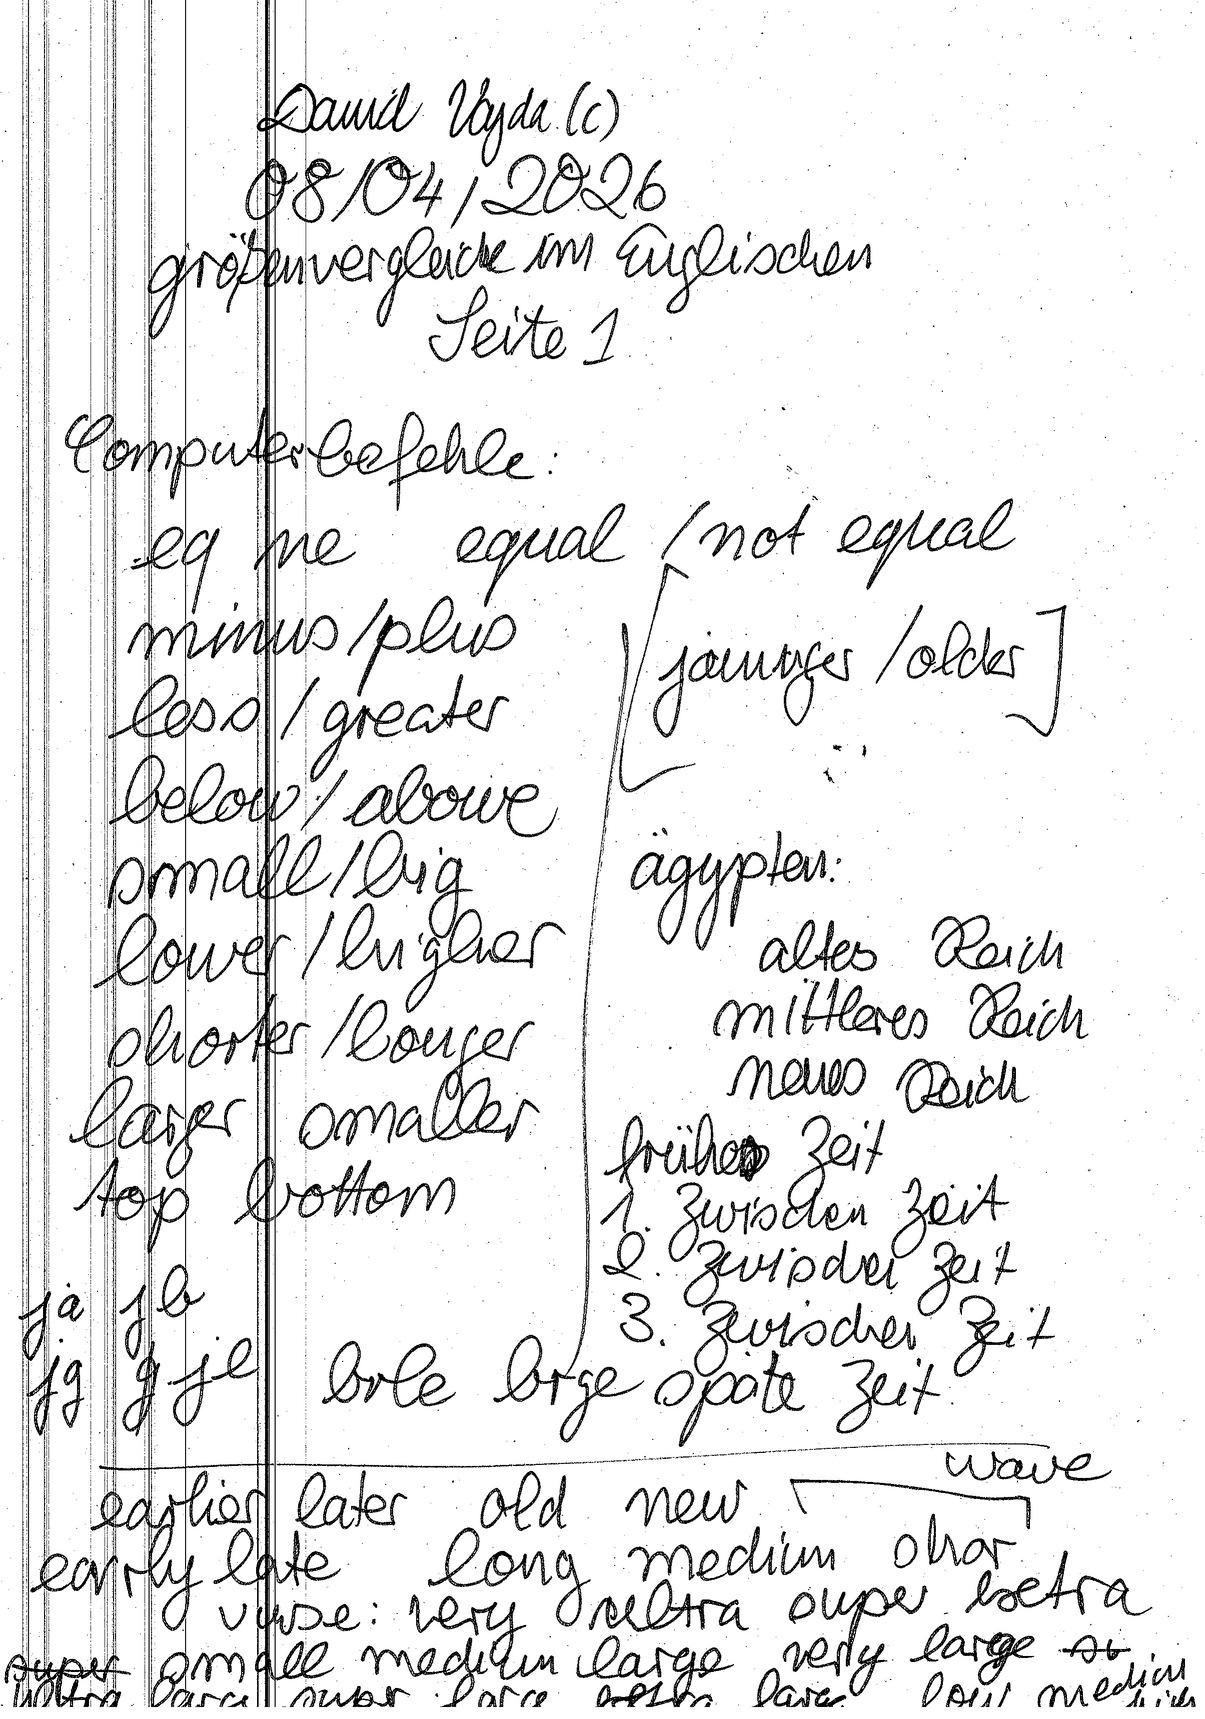 David Vajda (C)
08/04/2026
größenvergleiche im Englischen
Seite 1
Computerbefehle:
eq ne equal / not equal
minus/plus
[jaunger / older]
less / greater
below / above
small / big
lower / higher
shorter / longer
larger smaller
top bottom
ja jb
jg g jl brle brge
ägypten:
altes Reich
mittleres Reich
neues Reich
frühe Zeit
1. Zwischen Zeit
2. Zwischen Zeit
3. Zwischen Zeit
späte Zeit
wave
earlier later old new
early late long medium shor
very ultra super extra
super small medium large very large
ultra large super large extra large low medium